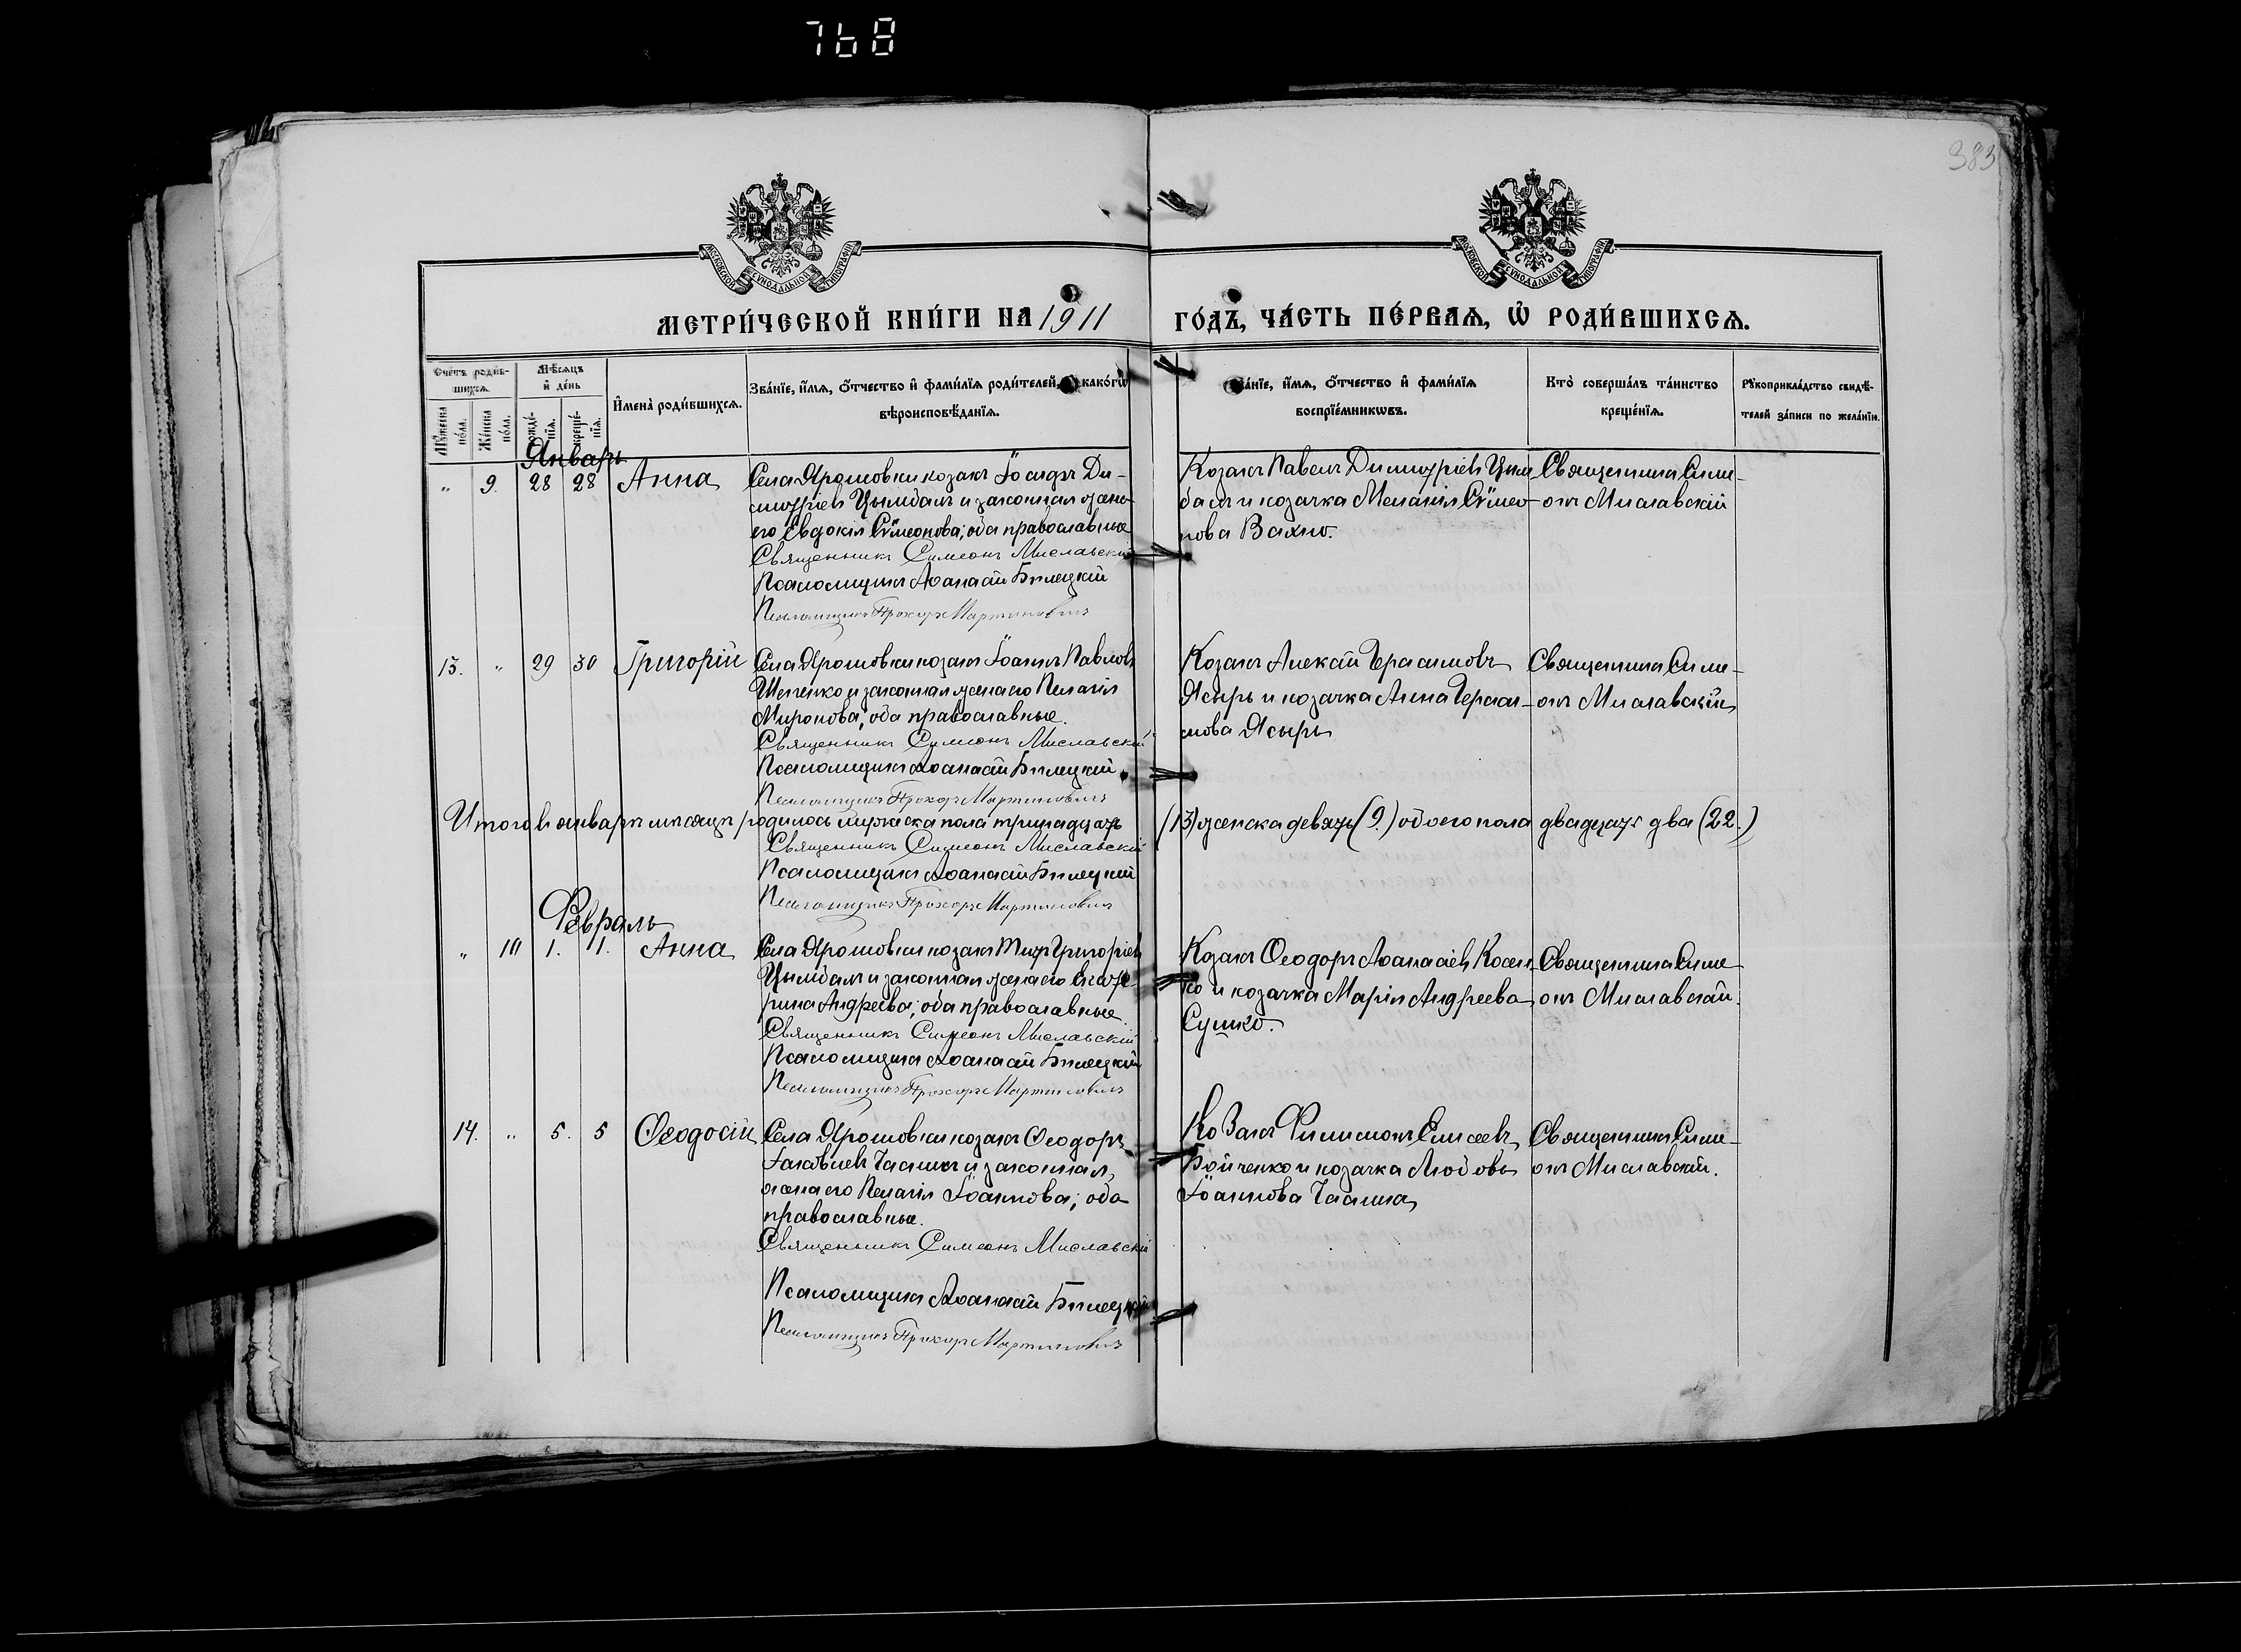 768
383
МОСКОВСКОЙ СѴНОДАЛЬНОЙ ТИПОГРАФІИ
МОСКОВСКОЙ СѴНОДАЛЬНОЙ ТИПОГРАФІИ
МЕТРИ́ЧЕСКОЙ КНИ́ГИ НА 1911 ГО́ДЪ, ЧА́СТЬ ПЕ́РВАѦ, Ѡ҆ РОДИ́ВШИХСѦ.
Сче́тъ роди́в-
шихсѧ.
Мꙋ́жеска по́ла.
Же́нска по́ла.
Мѣ́сяцъ
и҆ де́нь
рожде́-
нїѧ.
креще́-
нїѧ.
И҆мена̀ роди́вшихсѧ.
Зва́нїе, и҆́мѧ, ѻ҆́тчество и҆ фами́лїѧ роди́телей, како́гѡ
вѣроисповѣ́данїѧ.
Зва́нїе, и҆́мѧ, ѻ҆́тчество и҆ фами́лїѧ
воспрїе́мникѡвъ.
Кто̀ соверша́лъ та́инство
креще́нїѧ.
Рꙋкоприкла́дство свидѣ́-
телей за́писи по жела́нїю.
Январь
" 9. 28 28 Анна
Села Ярошовки козакъ Ди-
митріевъ Цымбалъ и законная жена
его Евдокія Сѵмеонова; оба православные
Священникъ Симеонъ Миславскій
Псаломщикъ Аѳанасій Билецкій
Псаломщикъ Прохоръ Мартиновичъ
Козакъ Павелъ Димитріевъ Цым
балъ и козачка Меланія Сѵмео-
нова Вахно.
Священникъ Симе-
онъ Миславскій
13. " 29 30 Григорій
Села Ярошовки козакъ Іоаннъ Павловъ
и законная жена его Пелагія
Миронова; оба православные.
Священникъ Симеонъ Миславскій
Псаломщикъ Аѳанасій Билецкій
Псаломщикъ Прохоръ Мартиновичъ
Козакъ Алексій Герасимовъ
Ясырь и козачка Анна Гераси-
мова Ясырь
Священникъ Симе-
онъ Миславскій
Итого въ январѣ мѣсяцѣ родилось мужеска пола тринадцать (13) женска девять (9.) обоего пола двадцать два (22.)
Священникъ Симеонъ Миславскій
Псаломщикъ Аѳанасій Билецкій
Псаломщикъ Прохоръ Мартиновичъ
Февраль
" 1. 1. Анна
Села Ярошовки козакъ Титъ Григоріевъ
Цымбалъ и законная жена его Екате
рина Андреева; оба православные.
Священникъ Симеонъ Миславскій
Псаломщикъ Аѳанасій Билецкій
Псаломщикъ Прохоръ Мартиновичъ
Козакъ Ѳеодоръ Аѳанасіевъ
ко и козачка Марія Андреева
Сушко.
Священникъ Симе
онъ Миславскій.
14. " 5. 5 Ѳеодосій
Села Ярошовки козакъ Ѳеодоръ
Іаковлевъ и законная
жена его Пелагія Іоаннова; оба
православные.
Священникъ Симеонъ Миславскій
Псаломщикъ Аѳанасій Билецкій
Псаломщикъ Прохоръ Мартиновичъ
Козакъ Филимонъ Елисеевъ
Бойченко и козачка Любовь
Іоаннова
Священникъ Симе-
онъ Миславскій.